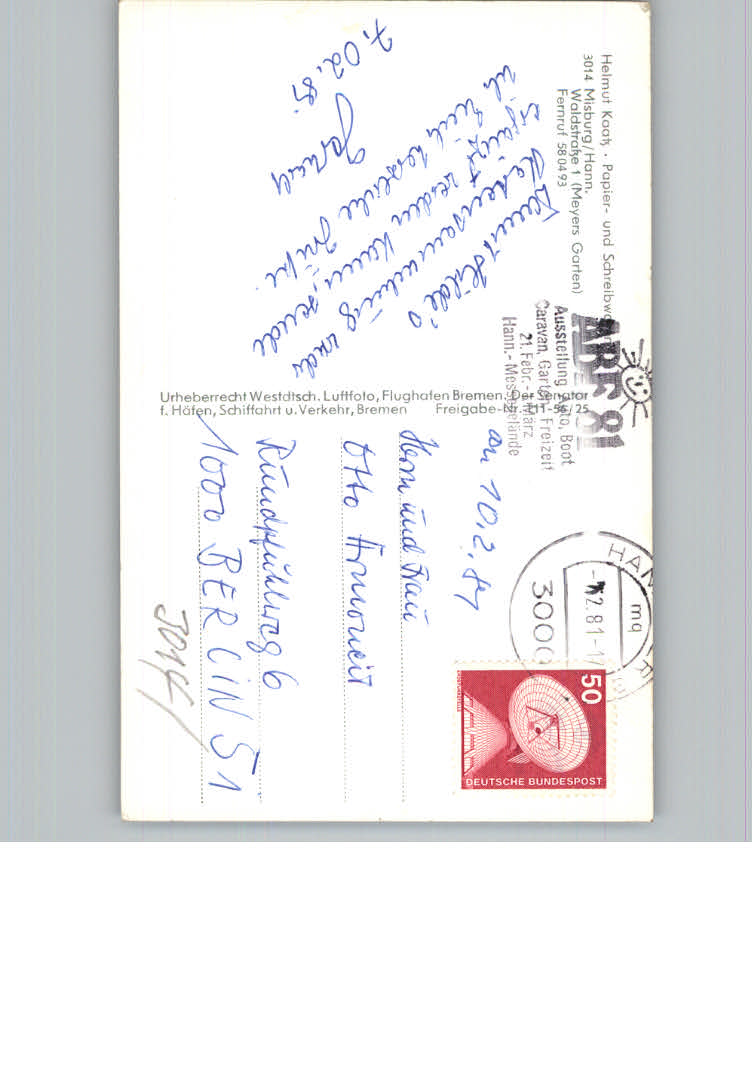 Helmut Kaatz · Papier- und Schreibwaren
3014 Misburg/Hann.
Waldstraße 1 (Meyers Garten)
Fernruf 58 04 93
Damit Hilde's
ergänzt werden kann, sende
ich Euch herzliche Grüße.
7.02.81.
Urheberrecht Westdtsch. Luftfoto, Flughafen Bremen. Der Senator
f. Häfen, Schiffahrt u. Verkehr, Bremen Freigabe-Nr. L11-56/25
ABF 81
Ausstellung Auto, Boot
Caravan, Garten, Freizeit
21. Febr.- 1. März
Hann.- Messegelände
HANNOVER
mq
2.81-1
3000
50
DEUTSCHE BUNDESPOST
an 10.2.81
Herrn und Frau
Otto Armoneit
Rundpfuhlweg 6
1000 BERLIN 51